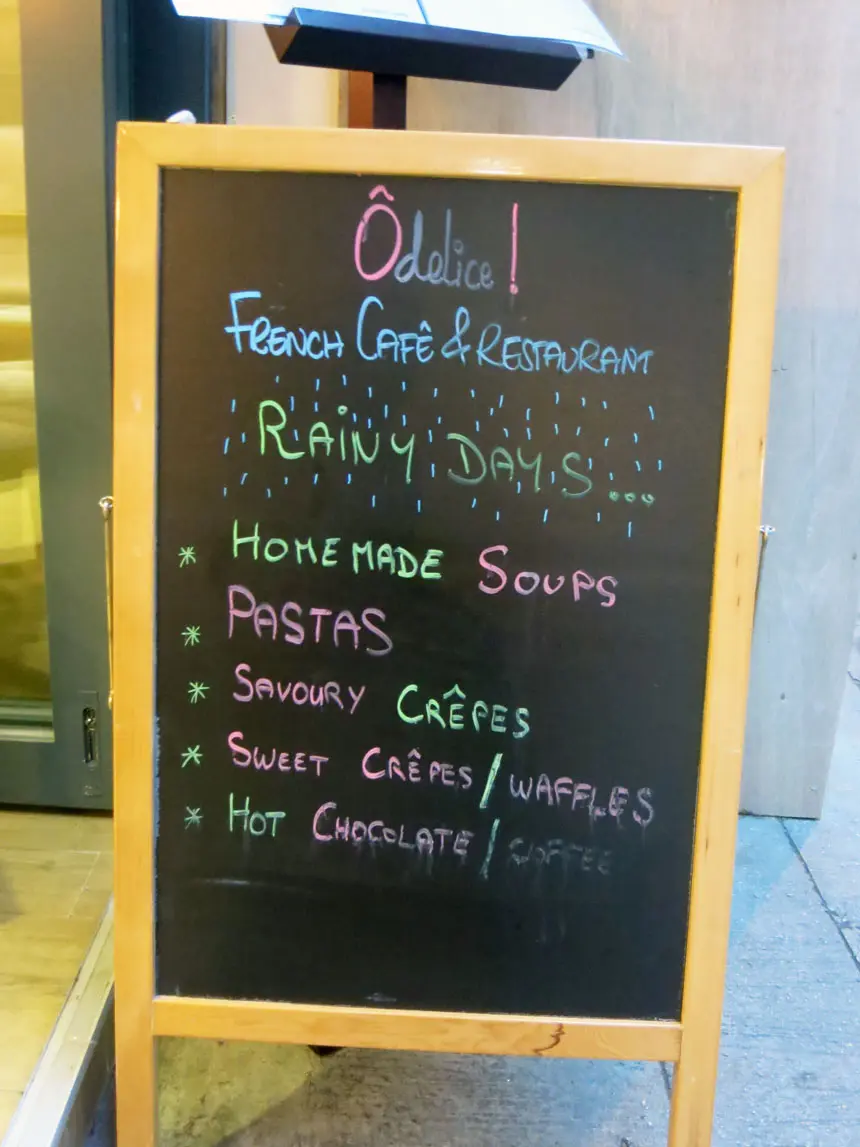 Ôdelice!
FRENCH CAFÊ & RESTAURANT
RAINY DAYS...
* HOMEMADE SOUPS
* PASTAS
* SAVOURY CRÊPES
* SWEET CRÊPES / WAFFLES
* HOT CHOCOLATE / COFFEE